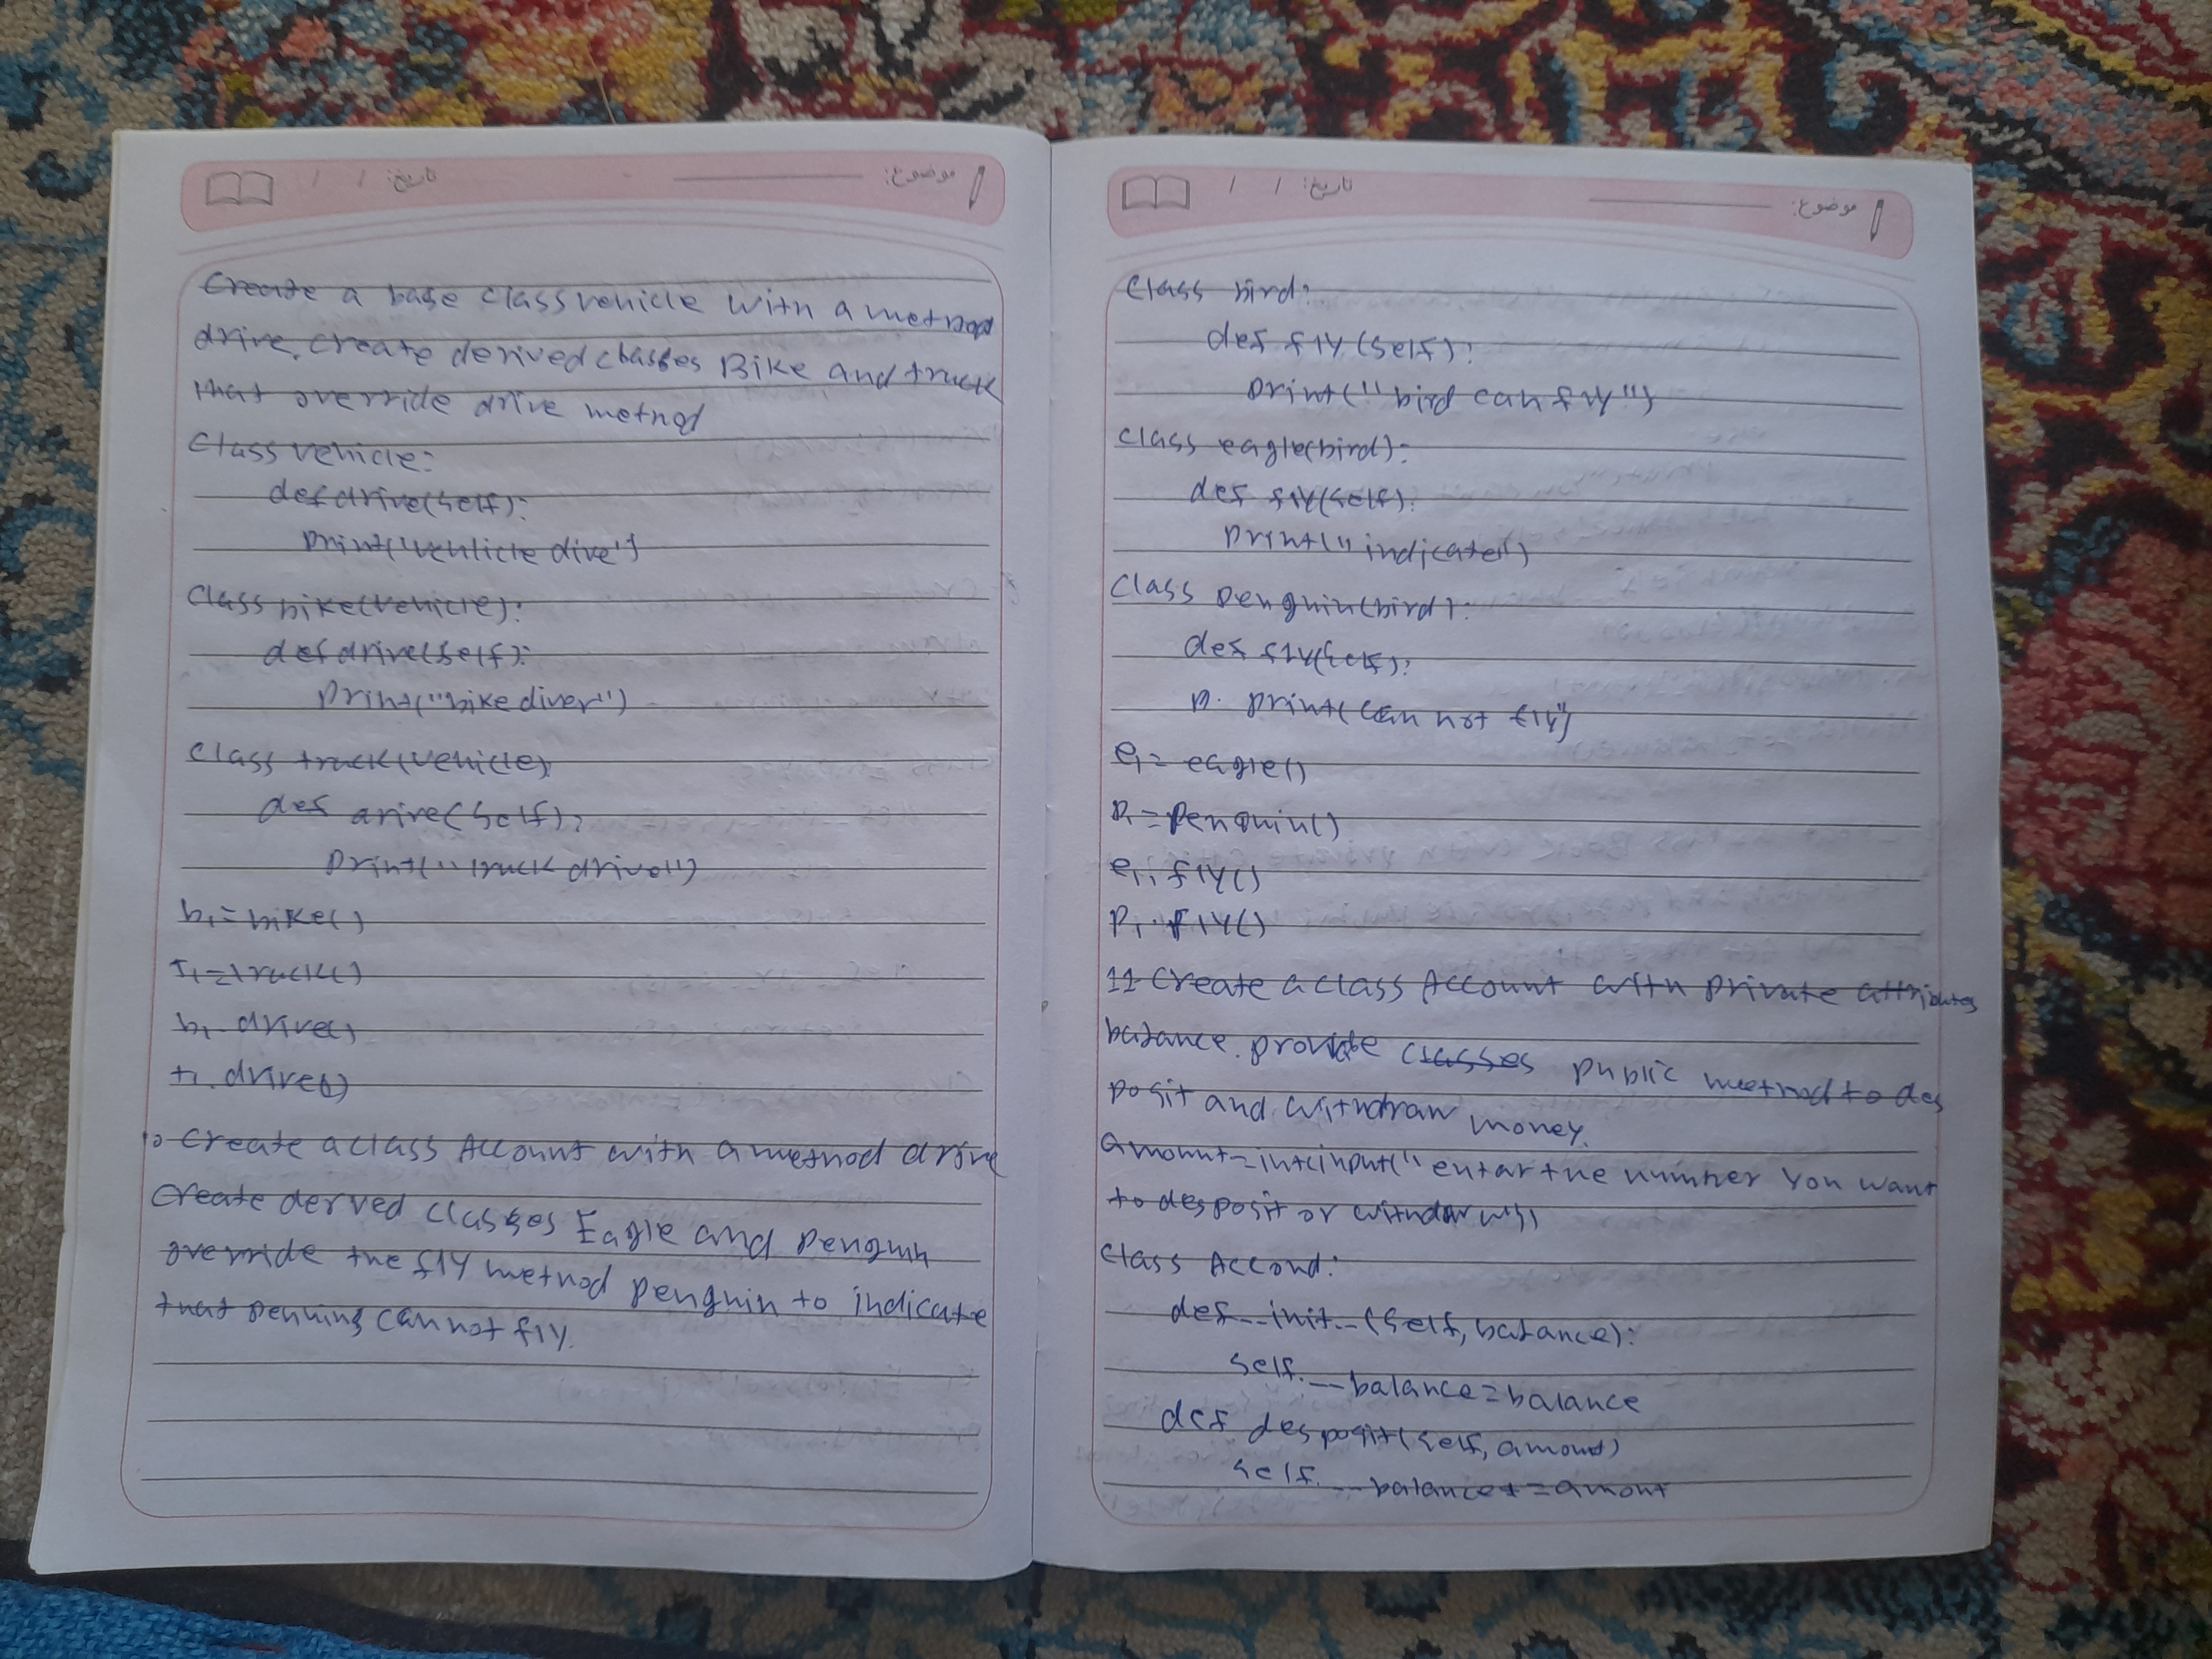 تاریخ: / / موضوع:
Create a base class vehicle with a method
drive. Create derived classes Bike and truck
that override drive method
Class vehicle:
def drive(self):
print("vehicle dive")
Class bike(vehicle):
def drive(self):
print("bike diver")
Class truck(vehicle)
def drive(self):
print("truck drive")
b1=bike()
T1=truck()
b1.drive()
t1.drive()
10-Create a class Account with a method drive
Create derved classes Eagle and penguin
override the fly method penguin to indicate
that pening can not fly.
تاریخ: / / موضوع:
Class bird:
def fly(self):
print("bird can fly")
Class eagle(bird):
def fly(self):
print("indicate")
Class penguin(bird):
def fly(self):
p. print(can not fly")
e1=eagle()
P1=penguin()
e1.fly()
P1.fly()
11-Create a class Account with private attributes
balance. provide classes public method to des
posit and withdraw money.
amount=int(input("entar the number you want
to desposit or withdraw"))
class Accond:
def __init__(self,balance):
self.__balance=balance
def desposit(self,amount)
self.__balance+=amount